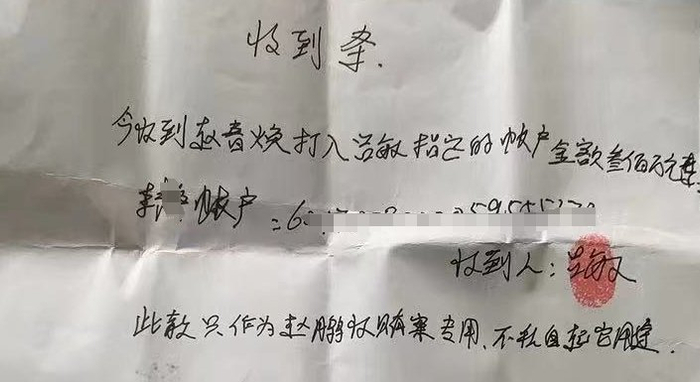 收到条.
今收到赵音焕打入吕敏指定的帐户金额叁佰万元整
帐户:6
收到人:吕敏
此款只作为赵鹏 专用、不私自 它用途.